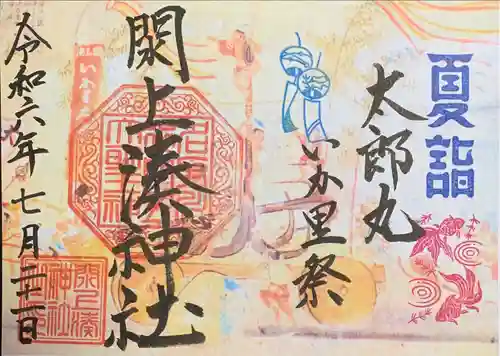 夏詣
太郎丸
いか里祭
閖上湊神社
令和六年七月
閖上湊
神社